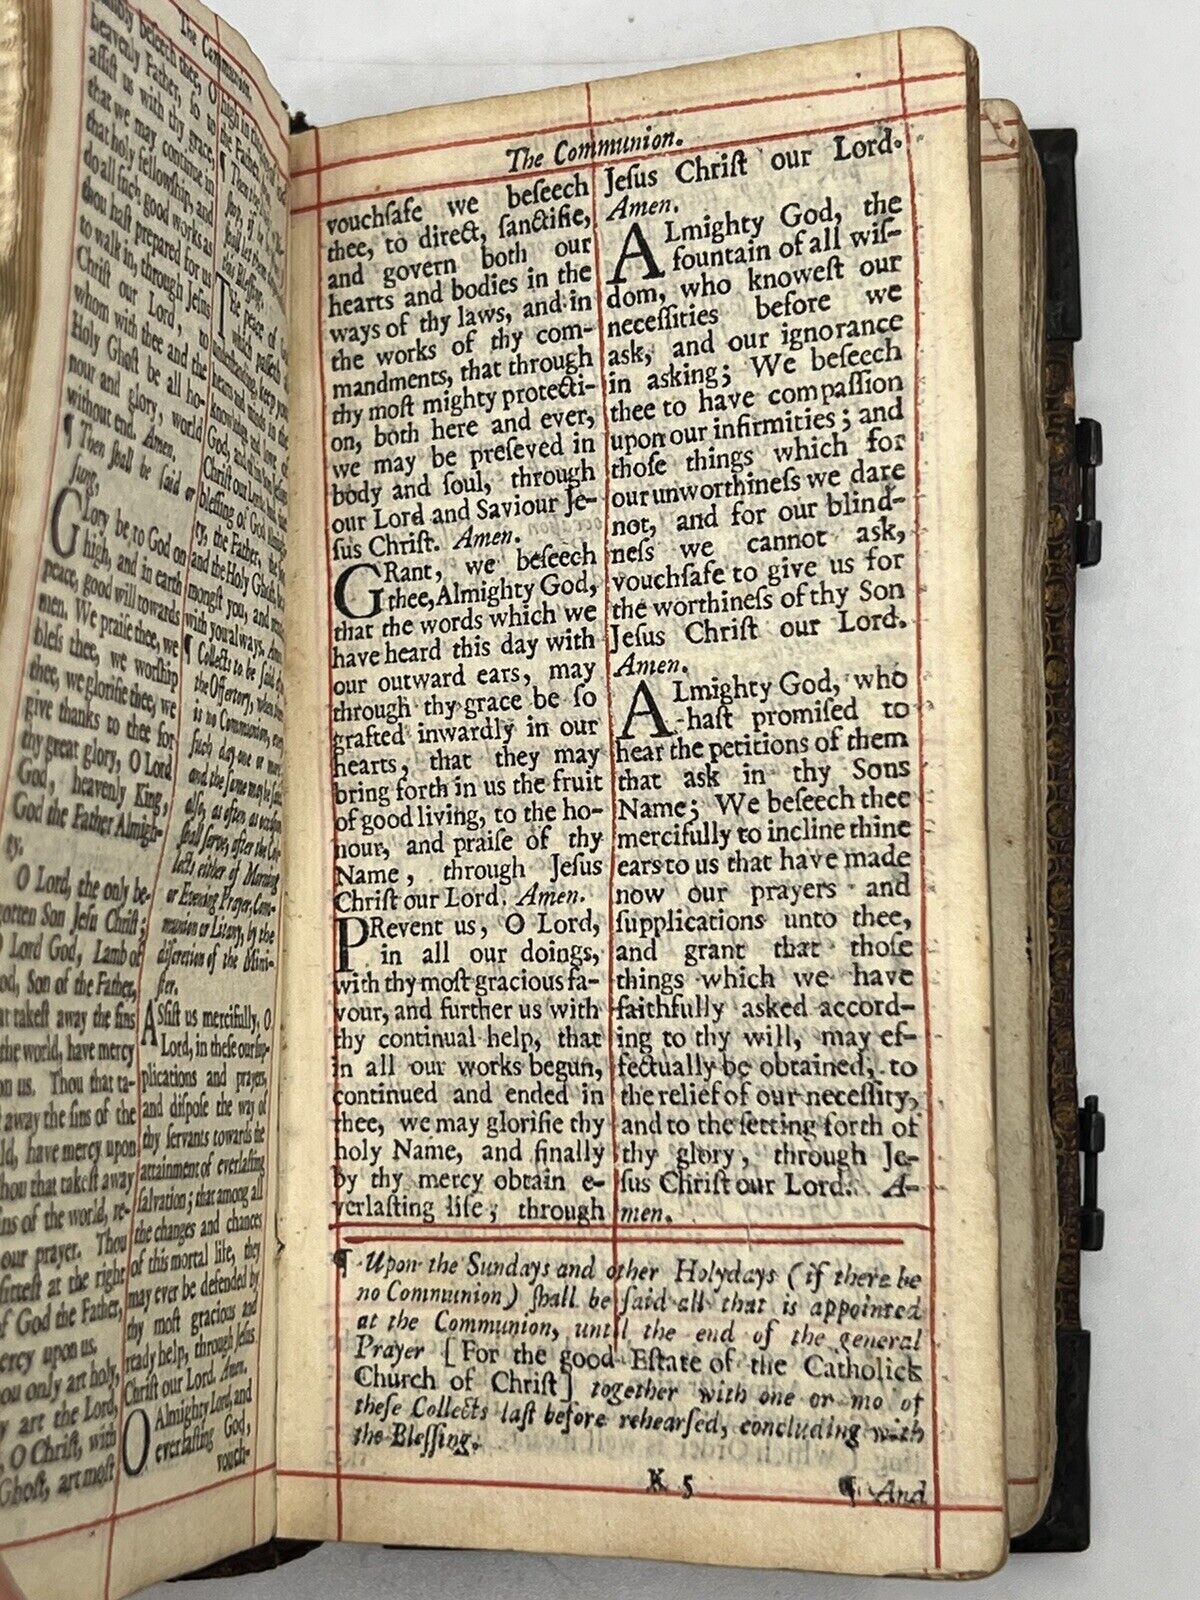 The Communion.
heavenly Father, so to
assist us with thy grace,
that we may continue in
that holy fellowship, and
do all such good works as
thou hast prepared for us
to walk in, through Jesus
Christ our Lord, to
whom with thee and the
Holy Ghost be all ho-
nour and glory, world
without end. Amen.
¶ Then shall be said or
sung,
GLory be to God on
high, and in earth
peace, good will towards
men. We praise thee, we
bless thee, we worship
thee, we glorifie thee, we
give thanks to thee for
thy great glory, O Lord
God, heavenly King,
God the Father Almigh-
ty.
O Lord, the only be-
gotten Son Jesu Christ;
O Lord God, Lamb of
God, Son of the Father,
takest away the sins
the world, have mercy
on us. Thou that ta-
away the sins of the
have mercy upon
thou that takest away
sins of the world, re-
our prayer. Thou
sittest at the right
of God the Father,
mercy upon us.
thou only art holy,
art the Lord,
O Christ, with
Ghost, art most
high in
the Father,
¶ Then
this Blessing.
THe peace of
which passeth
understanding, keep your
hearts and minds in the
knowledge and love of
God, and of his Son
Christ our Lord. And the
blessing of God Almigh-
ty, the Father, the Son,
and the Holy Ghost, be a-
mongst you, and
with you always. Amen.
¶ Collects to be said after
the Offertory, when there
is no Communion, every
such day one or more;
and the same may be said
also, as often as occasion
shall serve, after the Col-
lects either of Morning
or Evening Prayer, Com-
munion or Litany, by the
discretion of the Mini-
ster.
ASsist us mercifully, O
Lord, in these our sup-
plications and prayers,
and dispose the way of
thy servants towards the
attainment of everlasting
salvation; that among all
the changes and chances
of this mortal life, they
may ever be defended by
thy most gracious and
ready help, through Jesus
Christ our Lord. Amen.
O Almighty Lord, and
everlasting God,
vouch-
The Communion.
vouchſafe we beſeech
thee, to direct, ſanctifie,
and govern both our
hearts and bodies in the
ways of thy laws, and in
the works of thy com-
mandments, that through
thy moſt mighty protecti-
on, both here and ever,
we may be preſeved in
body and ſoul, through
our Lord and Saviour Je-
ſus Chriſt. Amen.
GRant, we beſeech
thee, Almighty God,
that the words which we
have heard this day with
our outward ears, may
through thy grace be ſo
grafted inwardly in our
hearts, that they may
bring forth in us the fruit
of good living, to the ho-
nour, and praiſe of thy
Name, through Jeſus
Chriſt our Lord. Amen.
PRevent us, O Lord,
in all our doings,
with thy moſt gracious fa-
vour, and further us with
thy continual help, that
in all our works begun,
continued and ended in
thee, we may glorifie thy
holy Name, and finally
by thy mercy obtain e-
verlaſting life; through
Jeſus Chriſt our Lord.
Amen.
ALmighty God, the
fountain of all wiſ-
dom, who knoweſt our
neceſſities before we
ask, and our ignorance
in asking; We beſeech
thee to have compaſſion
upon our infirmities; and
thoſe things which for
our unworthineſs we dare
not, and for our blind-
neſs we cannot ask,
vouchſafe to give us for
the worthineſs of thy Son
Jeſus Chriſt our Lord.
Amen.
ALmighty God, who
haſt promiſed to
hear the petitions of them
that ask in thy Sons
Name; We beſeech thee
mercifully to incline thine
ears to us that have made
now our prayers and
ſupplications unto thee,
and grant that thoſe
things which we have
faithfully asked accord-
ing to thy will, may ef-
fectually be obtained, to
the relief of our neceſſity,
and to the ſetting forth of
thy glory, through Je-
ſus Chriſt our Lord. A-
men.
¶ Upon the Sundays and other Holydays (if there be
no Communion) ſhall be ſaid all that is appointed
at the Communion, until the end of the general
Prayer [For the good Eſtate of the Catholick
Church of Chriſt] together with one or mo of
theſe Collects laſt before rehearſed, concluding with
the Bleſſing.
K 5
¶ And